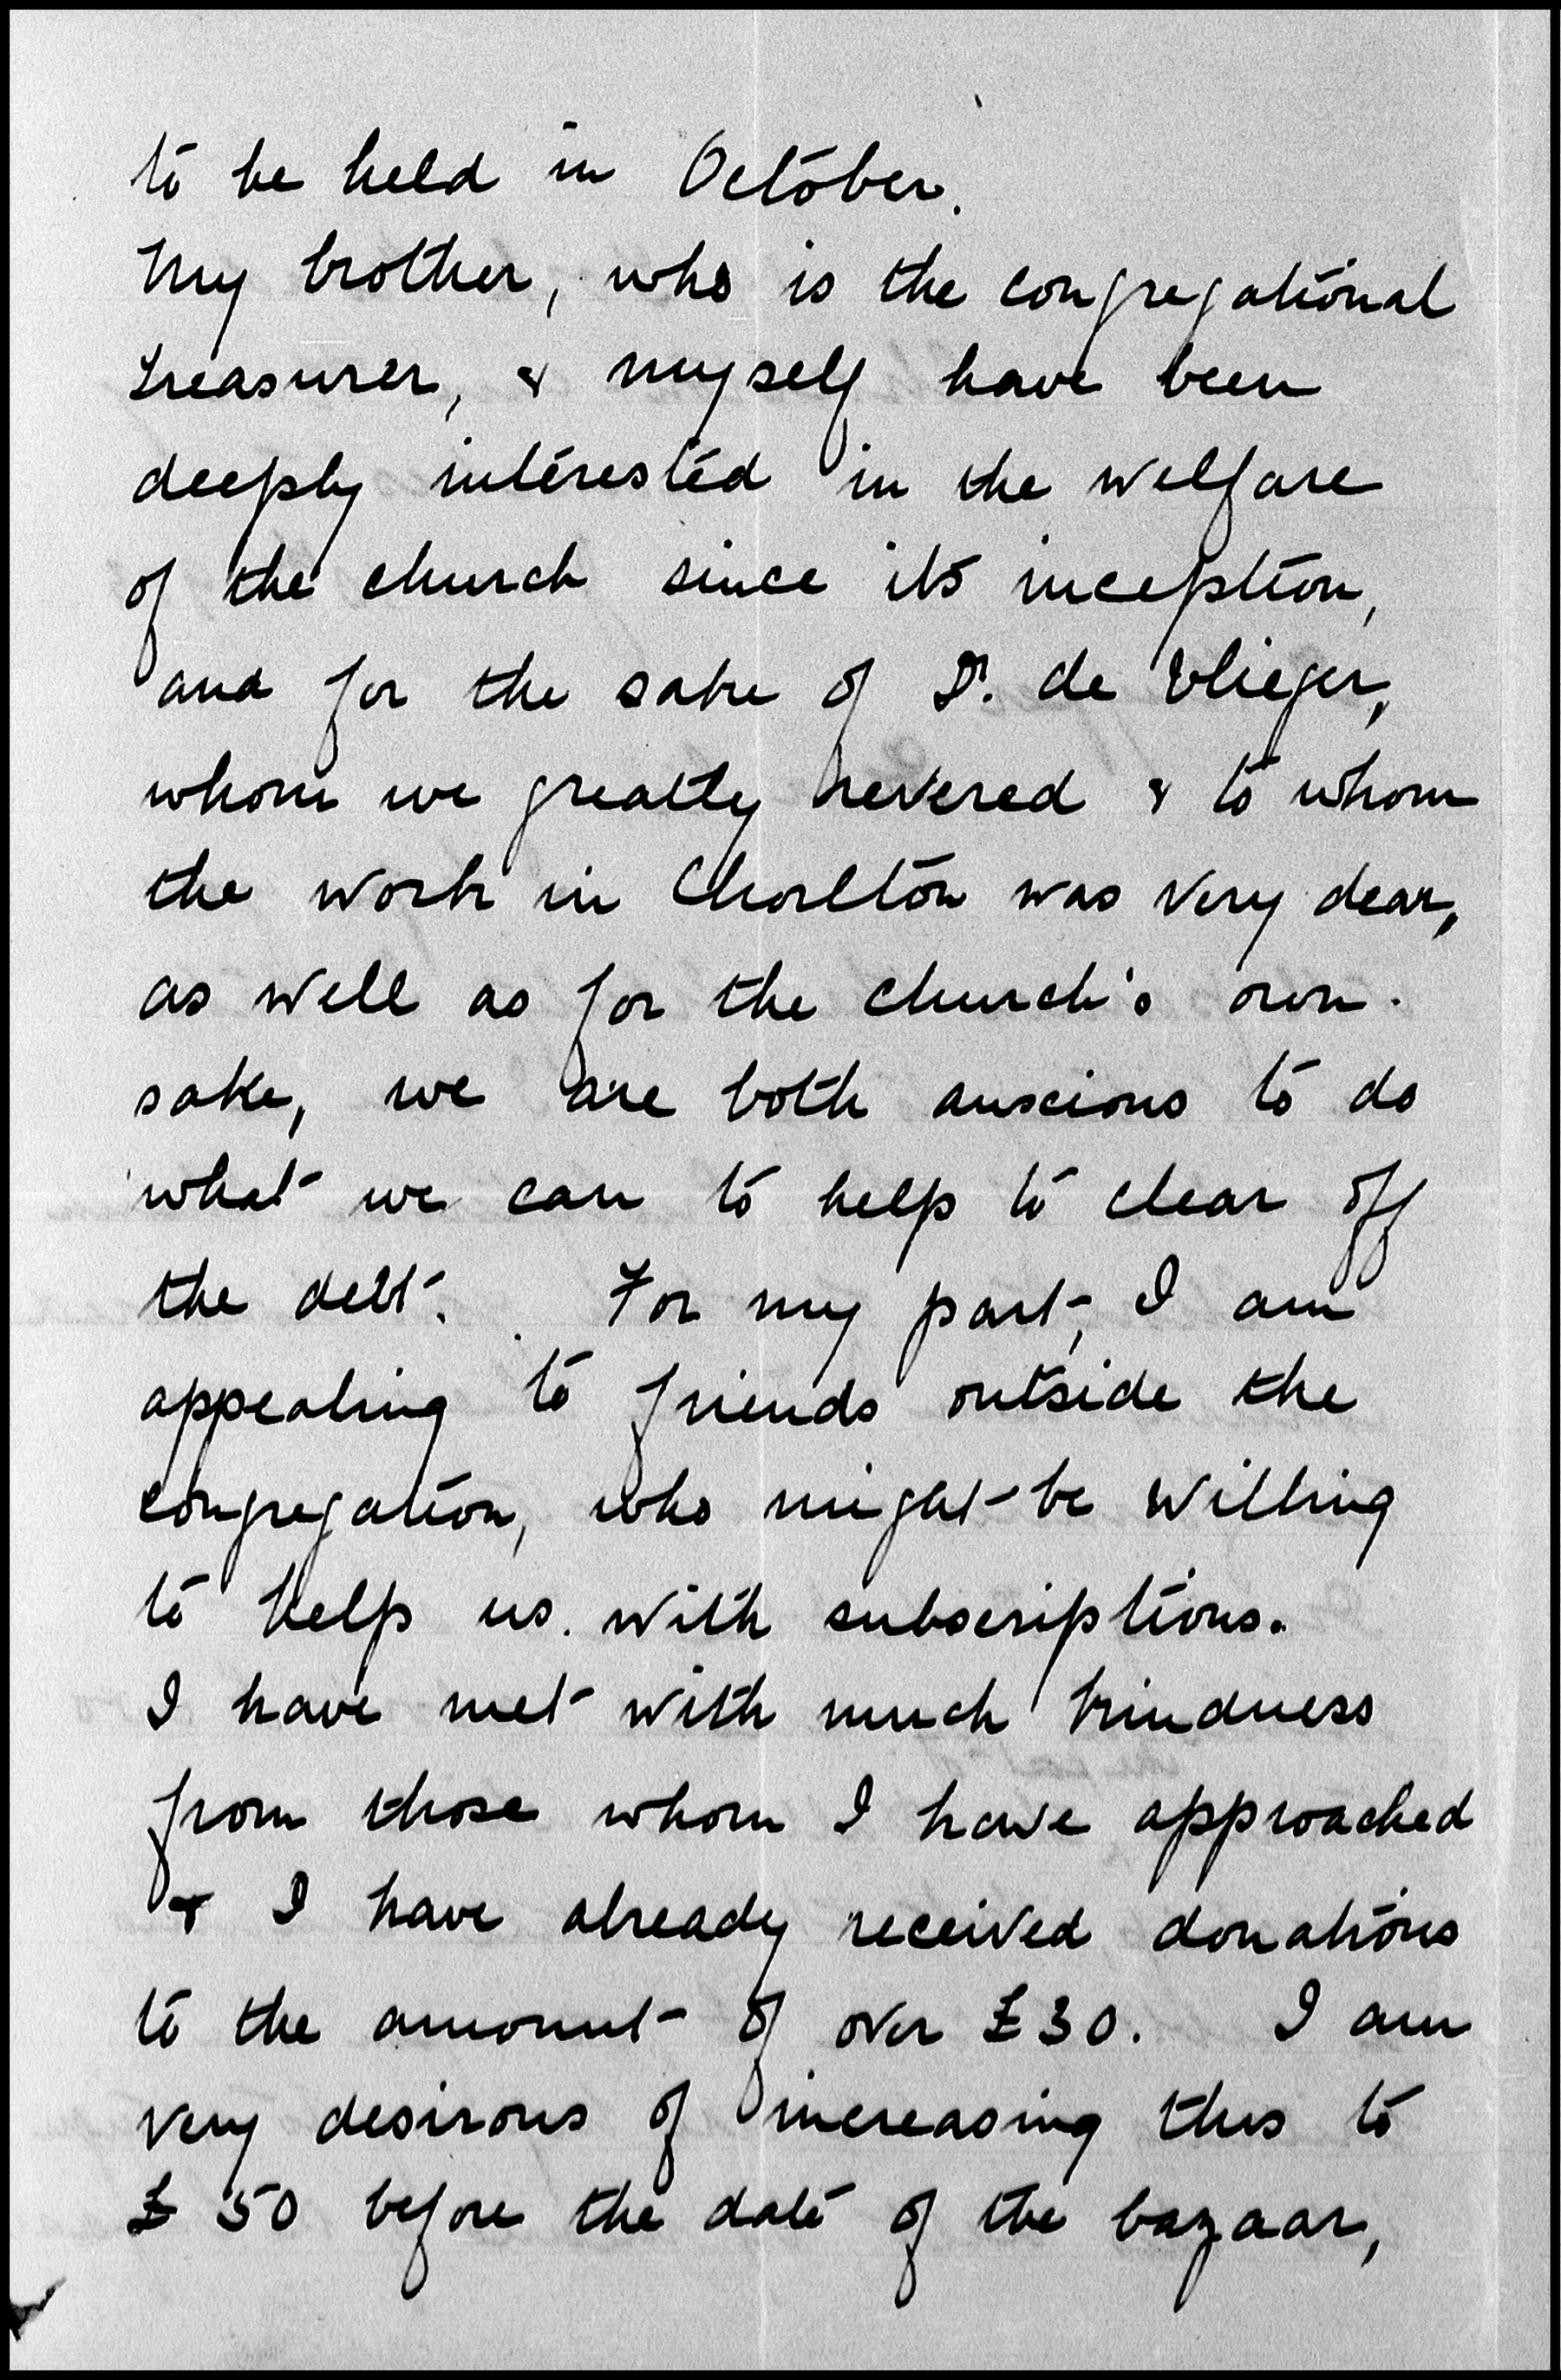 to be held in October.
My brother, who is the congregational
treasurer, & myself have been
deeply interested in the welfare
of the church since its inception,
and for the sake of Dr. de Vlieger,
whom we greatly revered & to whom
the work in Chorlton was very dear,
as well as for the church's own
sake, we are both anxious to do
what we can to help to clear off
the debt. For my part, I am
appealing to friends outside the
congregation, who might be willing
to help us with subscriptions.
I have met with much kindness
from those whom I have approached
& I have already received donations
to the amount of over £30. I am
very desirous of increasing this to
£50 before the date of the bazaar,